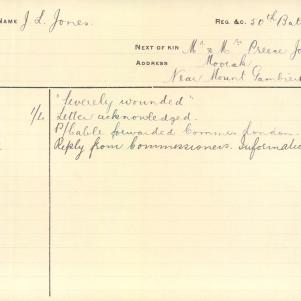 NAME J. L. Jones. REG. &C. 50th Bat
NEXT OF KIN Mr & Mrs Preece Jo
ADDRESS Moorak
Near Mount Gambier
"Severely wounded"
1/6 Letter acknowledged.
P/Cable forwarded Commrs London
Reply from Commissioners. Informatio